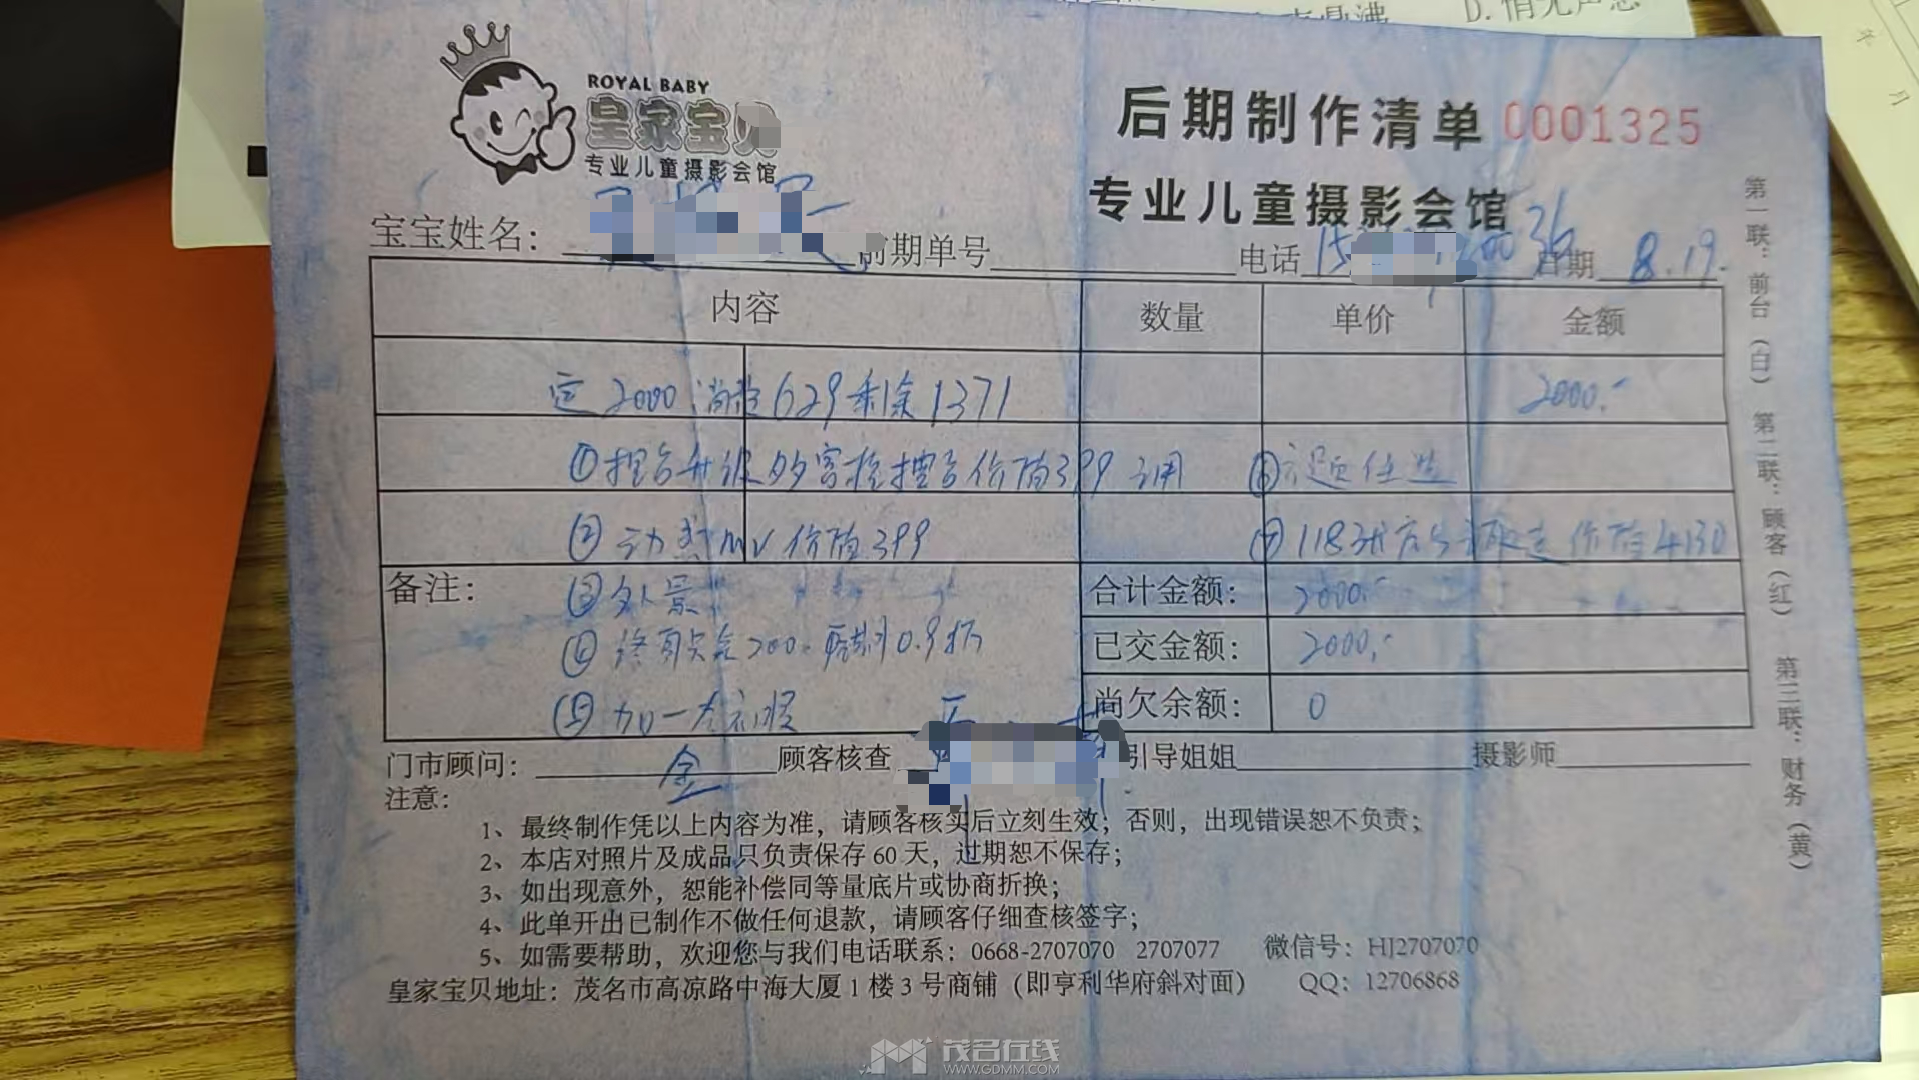 鼎沸 D.悄无声息
年 月
ROYAL BABY
皇家宝贝
专业儿童摄影会馆
后期制作清单 0001325
专业儿童摄影会馆
宝宝姓名： 前期单号 电话 15 36 日期 8.19.
内容 数量 单价 金额
定2000 消费629剩余1371 2000.-
①摆台升级 摆台价值399
②动 mv 价值399 ⑦118张 价值4130
备注： ③外景 合计金额： 2000.-
④ 200. 0.9折 已交金额： 2000.-
⑤加一套衣服 尚欠余额： 0
门市顾问： 金 顾客核查 引导姐姐 摄影师
注意：
1、最终制作凭以上内容为准，请顾客核实后立刻生效；否则，出现错误恕不负责；
2、本店对照片及成品只负责保存 60 天，过期恕不保存；
3、如出现意外，恕能补偿同等量底片或协商折换；
4、此单开出已制作不做任何退款，请顾客仔细查核签字；
5、如需要帮助，欢迎您与我们电话联系：0668-2707070 2707077 微信号：HJ2707070
皇家宝贝地址：茂名市高凉路中海大厦 1 楼 3 号商铺（即亨利华府斜对面） QQ：12706868
第一联：前台（白） 第二联：顾客（红） 第三联：财务（黄）
茂名在线
WWW.GDMM.COM